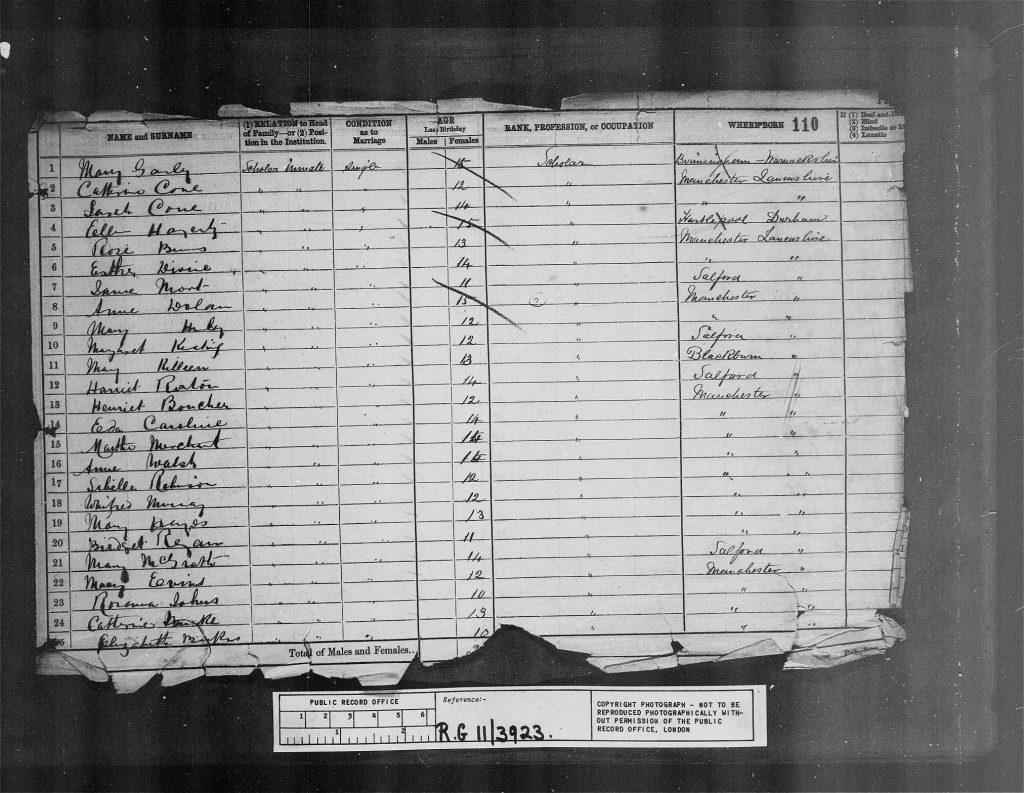 NAME and SURNAME (1) RELATION to Head of Family—or (2) Position in the Institution. CONDITION as to Marriage AGE Last Birthday Males Females RANK, PROFESSION, or OCCUPATION WHERE BORN 110 If (1) Deaf-and-Dumb (2) Blind (3) Imbecile or Id (4) Lunatic
1 Mary Scholar Inmate Single 15 Scholar Birmingham Warwickshire
2 Catherine Cone " " " 12 " Manchester Lancashire
3 Sarah Cone " " " 14 " " "
4 Ellen Hagerty " " " 15 " Hartlepool Durham
5 Rose Burns " " " 13 " Manchester Lancashire
6 Esther " " " 14 " " "
7 Mort " " " 11 " Salford "
8 Anne Dolan " " " 15 " Manchester "
9 Mary " " " 12 " " "
10 Margaret Keating " " " 12 " Salford "
11 Mary Killeen " " " 13 " Blackburn "
12 Harriet " " " 14 " Salford "
13 Henriet Boucher " " " 12 " Manchester "
14 Caroline " " " 14 " " "
15 Martha Merchant " " " 14 " " "
16 Anne Walsh " " " 14 " " "
17 Sibella Robinson " " " 12 " " "
18 Murray " " " 12 " " "
19 Mary Hayes " " " 13 " " "
20 Bridget Regan " " " 11 " " "
21 Mary McGrath " " " 14 " Salford "
22 Mary " " " 12 " Manchester "
23 Rosanna Johns " " " 10 " " "
24 Catherine " " " " " "
25 Elizabeth " " " 10 " " "
Total of Males and Females..
PUBLIC RECORD OFFICE
1 2 3 4 5 6
1 2
Reference:-
R.G 11/3923.
COPYRIGHT PHOTOGRAPH - NOT TO BE
REPRODUCED PHOTOGRAPHICALLY WITH-
OUT PERMISSION OF THE PUBLIC
RECORD OFFICE, LONDON